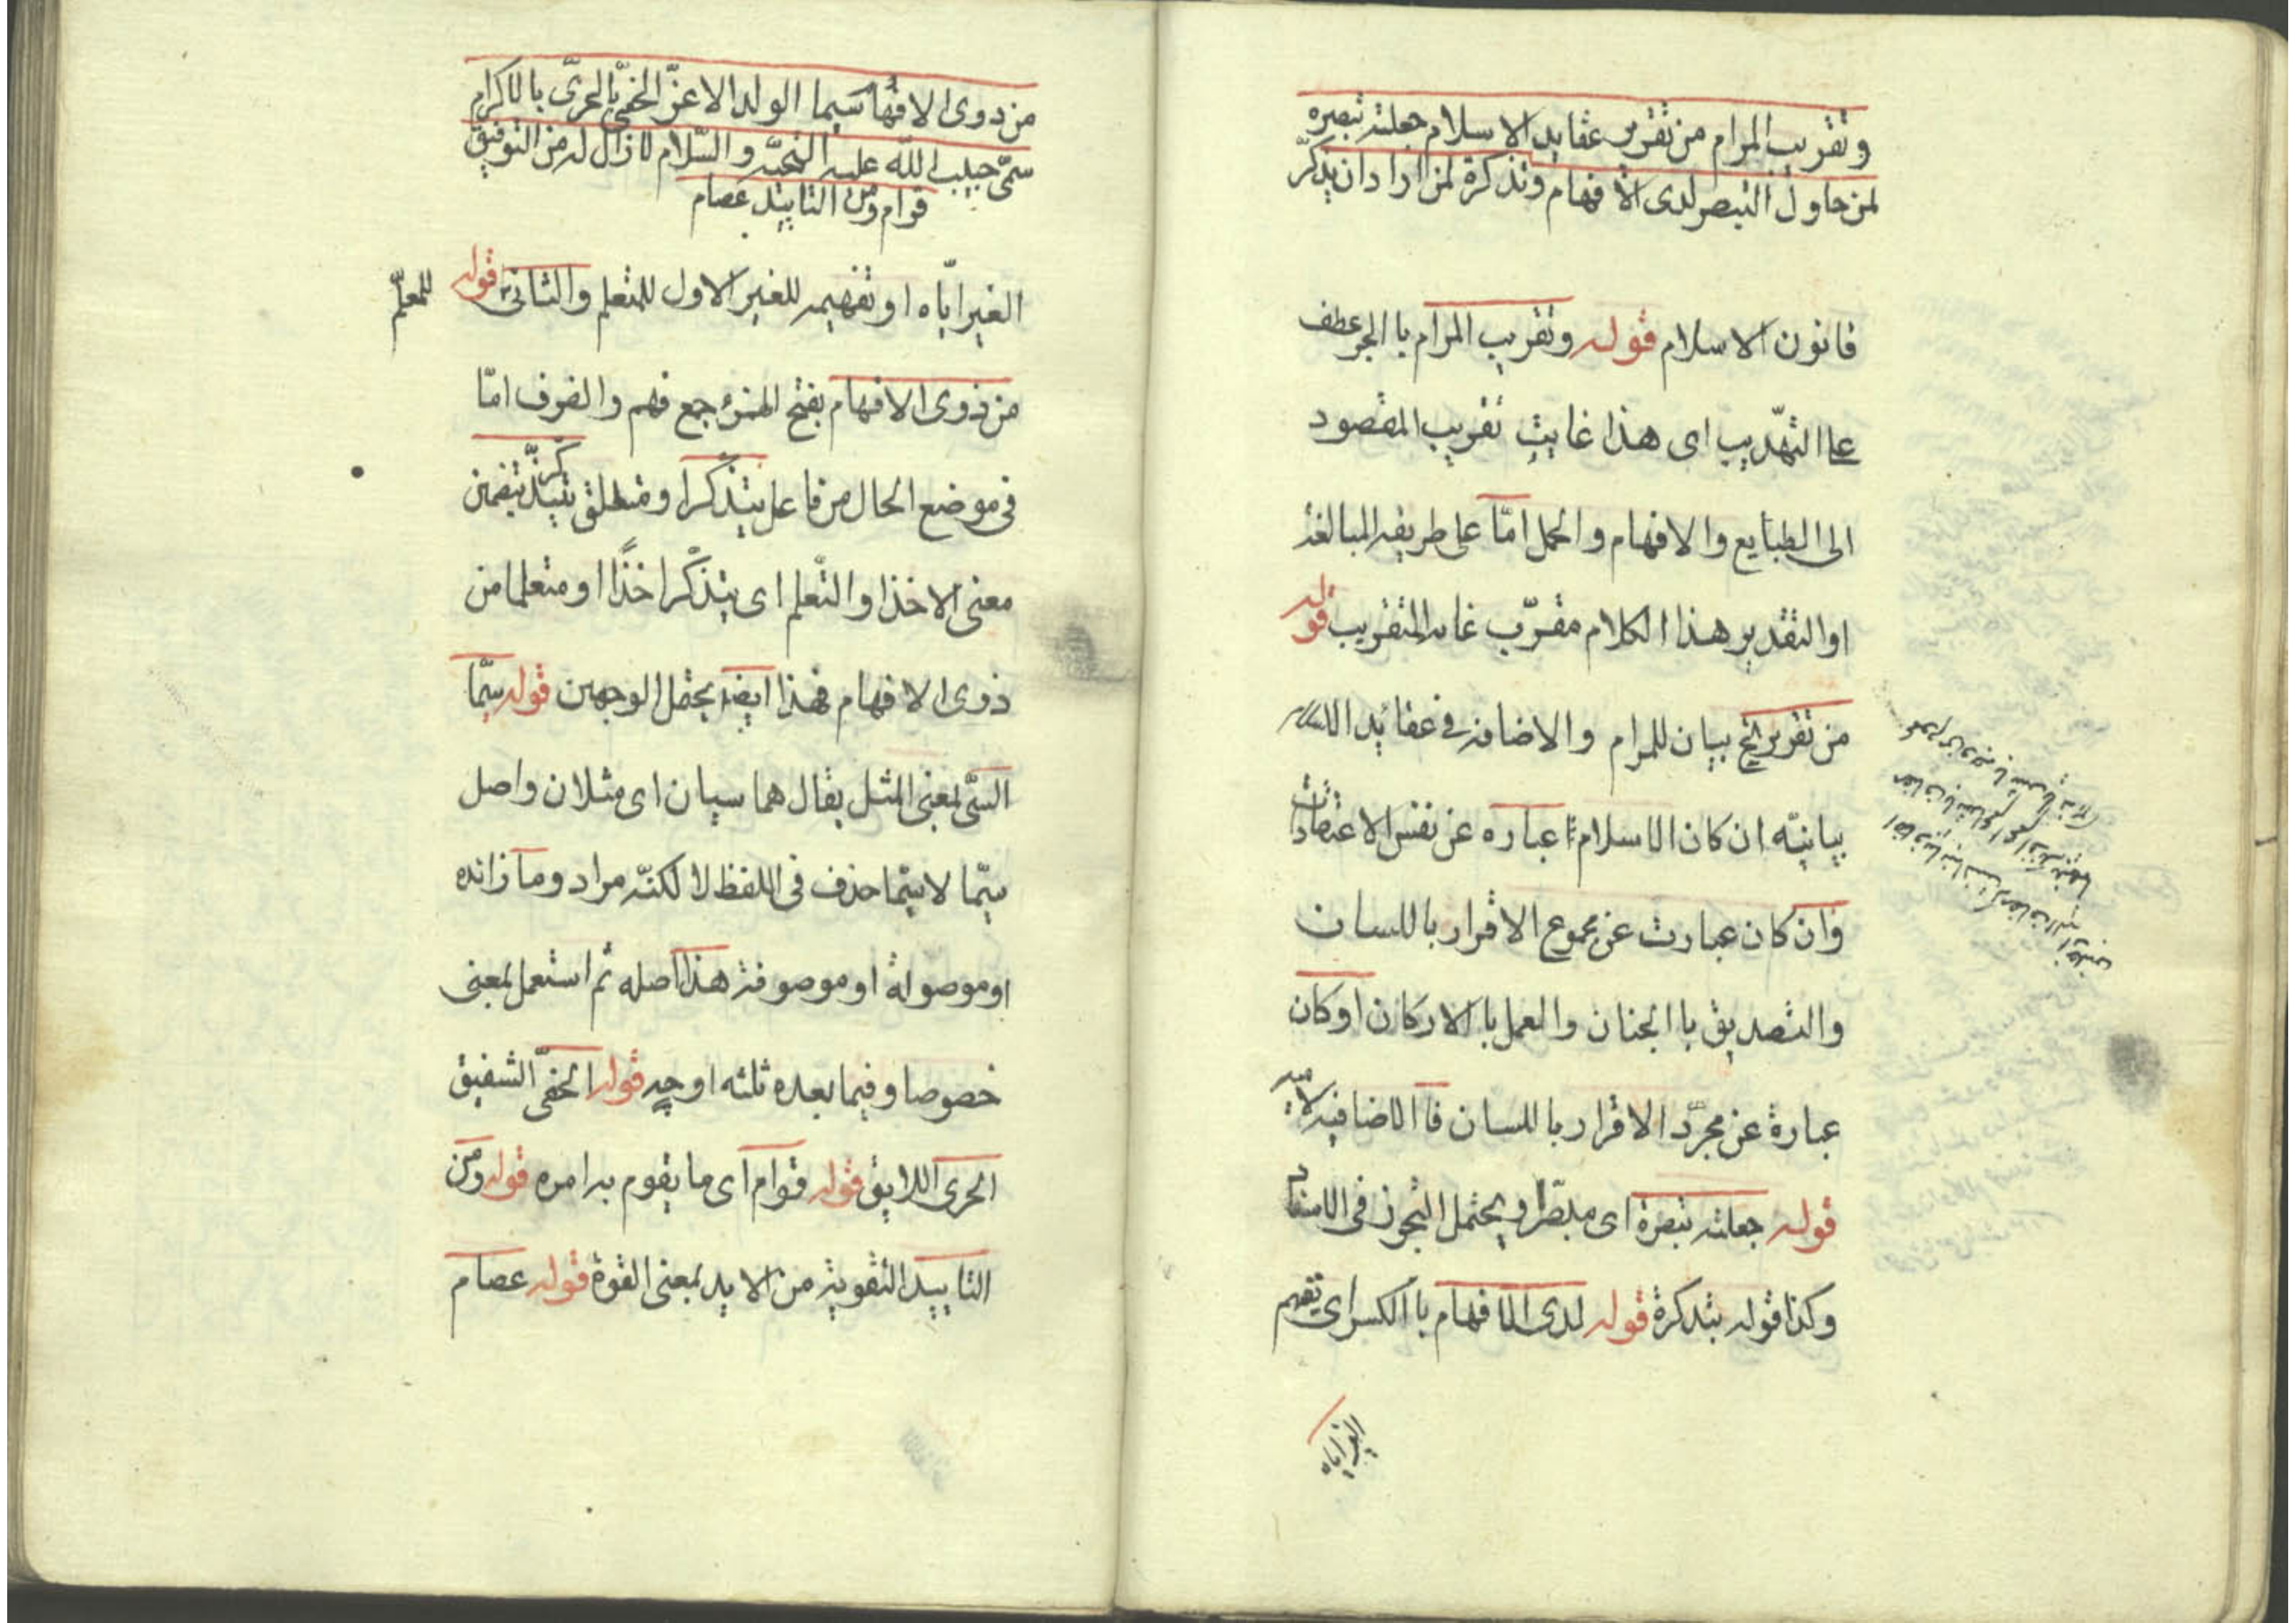 وتقريب المرام من تقرير عقايد الاسلام جعلته تبصره
لمن حاول التبصر لدى الافهام وتذكرة لمن اراد ان يتذكر
قانون الاسلام قوله وتقريب المرام با الجر عطف
على التهذيب اى هذا غايت تقريب المقصود
الى الطبايع والافهام والحمل امّا على طريقه المبالغة
اوالتقدير هذا الكلام مقرّب غايه التقريب قوله
من تقرير الخ بيان للمرام والاضافه فى عقائد الاسلام
بيانيّه ان كان الاسلام عباره عن نفس الاعتقادات
وان كان عبارت عن مجموع الاقرار باللسان
والتصديق با الجنان والعمل با الاركان اوكان
عبارة عن مجرّد الاقرار باللسان فا الاضافيه لاميه
قوله جعلته تبصرة اى مبصّرا ويحتمل التجوز فى الاسناد
وكذا قوله تذكرة قوله لدى الافهام با الكسر اى تفهيم
الغير اياه
من ذوى الافهام سيما الولد الاعزّ الحفىّ الحرىّ بالاكرام
سمىّ حبيب اللّه عليه التحيّه والسّلام لا زال له من التوفيق
قوام ومن التاييد عصام
الغير ايّاه او تفهيمه للغير الاول للمتعلم والثانى للمعلّم قوله
من ذوى الافهام بفتح الهمزة جمع فهم والظرف امّا
فى موضع الحال من فاعل يتذكّر او متعلق بيتذكّر بتضمين
معنى الاخذ او التّعلم اى يتذكّر اخذًا او متعلما من
ذوى الافهام فهذا ايضا يحتمل الوجهين قوله سيّما
السىّ بمعنى المثل يقال هما سيان اى مثلان واصل
سيّما لا سيّما حذف فى اللفظ لا لكنّه مراد وما زائده
او موصولة او موصوفة هذا اصله ثم استعمل بمعنى
خصوصا وفيما بعده ثلثه اوجه قوله الحفىّ الشفيق
الحرى اللايق قوله قوام اى ما يقوم به امره قوله ومن
التاييد التقوية من الايد بمعنى القوة قوله عصام